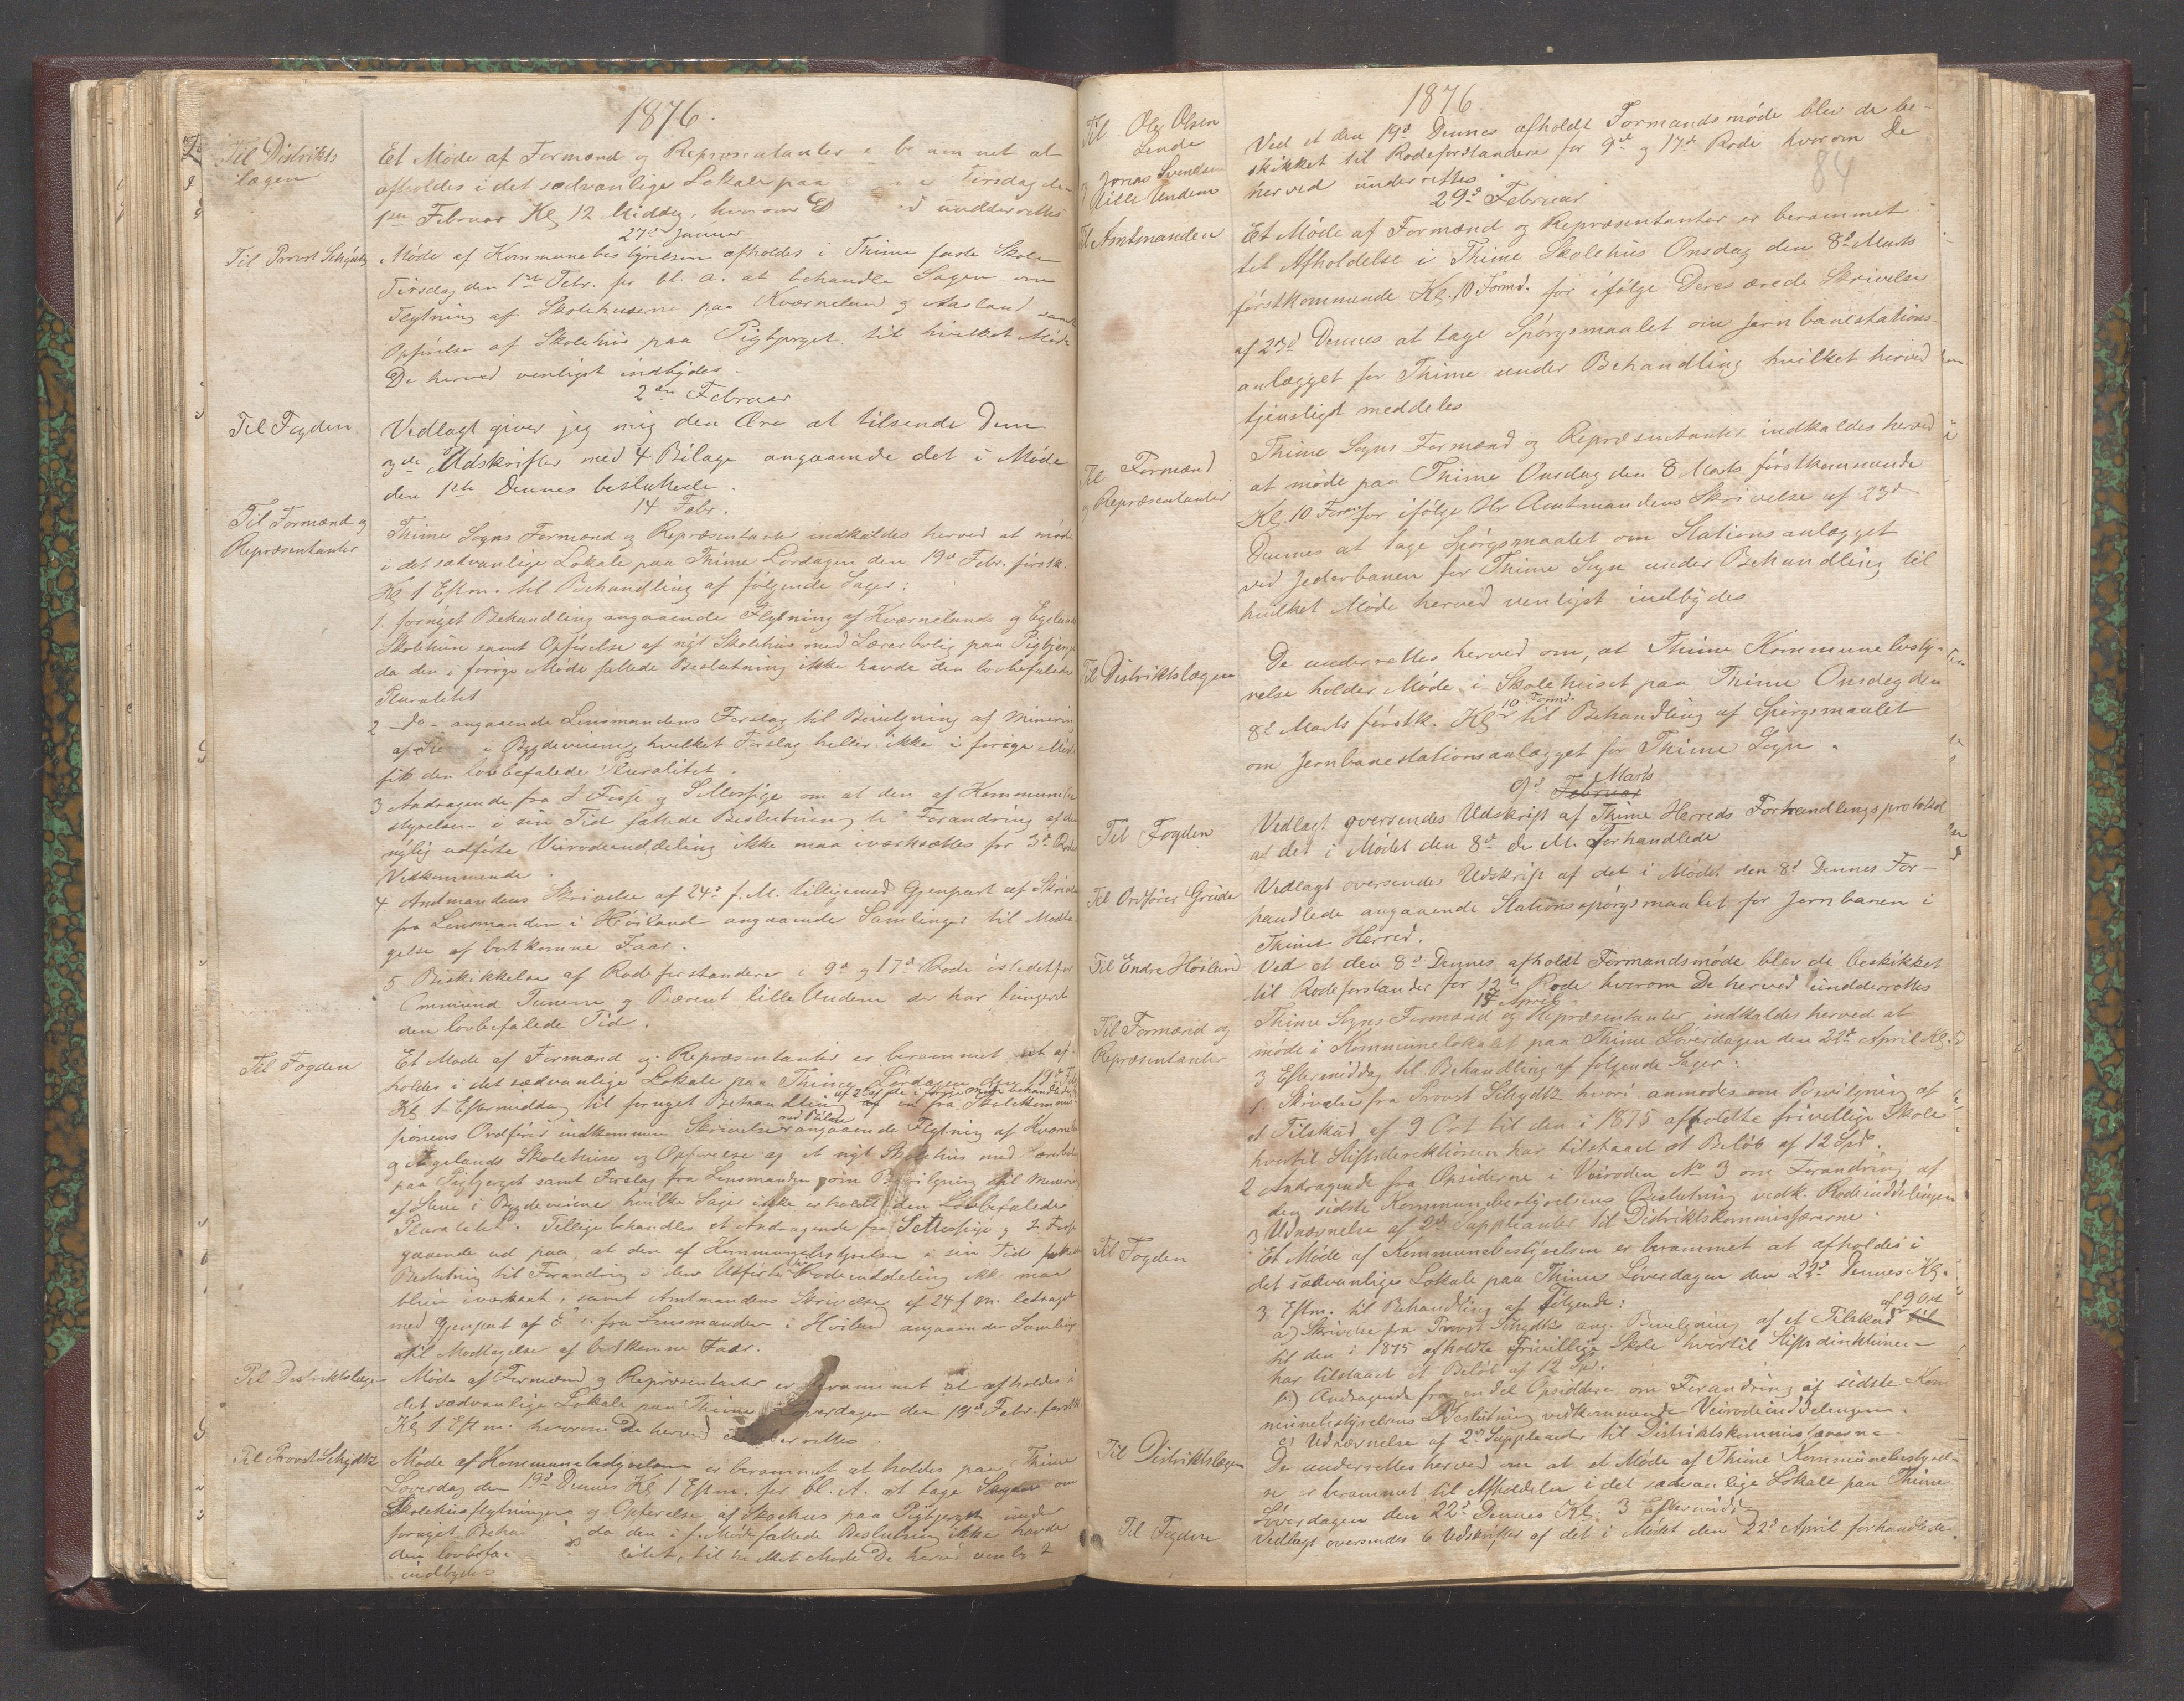 1876.
Til Distrikts
lægen
Et Møde af Formænd og Repræsentanter e be am met at
afholdes i det sædvanlige Lokale paa Tirsdag den
1ste Februar Kl 12 Middag, hvorom D d underrettes
27de Januar
Til Provst Schydtz
Møde af Kommunebestyrelsen afholdes i Thime faste Skole
Tirsdag den 1ste Febr. for bl. a. at behandle Sagen om
Flytning af Skolehuserne paa Kværneland og Aasland samt
Opførelse af Skolehus paa Pigbjerget til hvilket Møde
De herved venligst indbydes.
2den Februar
Til Fogden
Vedlagt giver jeg mig den Ære at tilsende Dem
3de Udskrifter med 4 Bilage angaaende det i Møde
den 1ste Dennes besluttede.
14 Febr.
Til Formænd og
Repræsentanter
Thime Sogns Formænd og Repræsentanter indkaldes herved at møde
i det sædvanlige Lokale paa Thime Lørdagen den 19de Febr. førstk.
Kl 1 Efterm. til Behandling af følgende Sager:
1. fornyet Behandling angaaende Flytning af Kværnelands og Egelands
Skolehuse samt Opførelse af nyt Skolehus med Lærerbolig paa Pigbjerget
da den i forrige Møde fattede Beslutning ikke havde den lovbefalede
Pluralitet
2 - do - angaaende Lensmandens Forslag til Bevilgning af Minering
af Ste i Bygdeveiene, hvilket Forslag heller ikke i forrige Møde
fik den lovbefalede Pluralitet.
3 Andragende fra T Fosse og S Mossige om at den af Kommunebe
styrelsen i sin Tid fattede Beslutning ti Forandring af den
nylig udførte Veirodeinddeling ikke maa iværksættes for 3de Rodes
Vedkommende.
4 Amtmandens Skrivelse af 24de f. M. tilligemed Gjenpart af Skrivelse
fra Lensmanden i Høiland angaaende Samlinger til Modta
gelse af bortkomne Faar.
5 Beskikkelse af Rodeforstandere i 9de og 17de Rode istedetfor
Ommund Tunem og Bærent lille Undem der har fungeret
den lovbefalede Tid.
Til Fogden
Et Møde af Formænd og Repræsentanter er berammet at af
holdes i det sædvanlige Lokale paa Thime Lørdagen den 19de Feb
Kl 1 Eftermiddag til fornyet Behandling af 2de af de i forrige Møde behandlede en fra Skolekommis
sionens Ordfører indkommen Skrivelse med Bilag angaaende Flytning af Kværne
og Egelands Skolehuse og Opførelse af et nyt Skolehus med Lærerbolig
paa Pigbjerget samt Forslag fra Lensmanden om Bevilgning til Minering
af Stene i Bygdeveiene hvilke Sage ikke erholdt den Lovbefalede
Pluralitet. Tillige behandles et Andragende fra S Mossige og T. Fosse
gaaende ud paa at den af Kommunebestyrelsen i sin Tid fattede
Beslutning til Forandring i den Udførte Rodeinddeling ikke maa
blive iværksat, samt Amtmandens Skrivelse af 24 f M. ledsaget
med Gjenpart af fra Lensmanden i Høiland angaaende Samlinger
til Modtagelse af bortkomne Faar.
Til Distriktslægen
Møde af Formænd og Repræsentanter er berammet at afholdes i
det sædvanlige Lokale paa Thime Løverdagen den 19de Febr. førstk.
Kl 1 Efterm. hvorom De herved underrettes.
Til Provst Schydtz
Møde af Kommunebestyrelsen er berammet at holdes paa Thime
Løverdag den 19de Dennes Kl 1 Efterm. for bl. A. at tage Sagen om
Skolehusflytningen og Opførelse af Skolehus paa Pigbjerget under
fornyet Beha da den i f. Møde fattede Beslutning ikke havde
den lovbefa litet, til hvilket Møde De herved venligst
indbydes
1876.
84
Til Ole Olsen
Lende
og Jonas Svendsen
Lille Undem
Ved et den 19de Dennes afholdt Formandsmøde blev de be-
skikket til Rodeforstandere for 9de og 17de Rode hvorom De
herved underrettes
29de Februar
Til Amtmanden
Et Møde af Formænd og Repræsentanter er berammet
til Afholdelse i Thime Skolehus Onsdag den 8de Marts
førstkommende Kl. 10 Formd. for ifølge Deres ærede Skrivelse
af 23de Dennes at tage Spørgsmaalet om Jernbanestations-
anlægget for Thime under Behandling hvilket herved
tjenstligst meddeles
Til Formænd
og Repræsentanter
Thime Sogns Formænd og Repræsentanter indkaldes herved
at møde paa Thime Onsdag den 8 Marts førstkommende
Kl. 10 Form for ifølge Hr Amtmandens Skrivelse af 23de
Dennes at tage Spørgsmaalet om Stationsanlægget
ved Jederbanen for Thime Sogn under Behandling til
hvilket Møde herved venligst indbydes
Til Distriktslægen
De underrettes herved om, at Thime Kommunebesty-
relse holder Møde i Skolehuset paa Thime Onsdag den
8de Marts førstk. Kl 10 Formd. til Behandling af Spørgsmaalet
om Jernbanestationsanlægget for Thime Sogn.
9de Februar Marts
Til Fogden
Vedlagt oversendes Udskrift af Thime Herreds Forhandlingsprotokol
af det i Mødet den 8de d. M. Forhandlede
Til Ordfører Grude
Vedlagt oversendes Udskrift af det i Mødet den 8de Dennes For-
handlede angaaende Stationsspørgsmaalet for Jernbanen i
Thime Herred.
Til Endre Høiland
Ved et den 8de Dennes afholdt Formandsmøde blev de beskikket
til Rodeforstander for 12te Rode hvorom De herved underrettes
April
Til Formænd og
Repræsentanter
Thime Sogns Formænd og Repræsentanter indkaldes herved at
møde i Kommunelokalet paa Thime Løverdagen den 22de April Kl.
3 Eftermiddag til Behandling af følgende Sager:
1. Skrivelse fra Provst Schydtz hvori anmodes om Bevilgning af
et Tilskud af 9 Ort til den i 1875 afholdte frivillige Skole
hvortil Stiftsdirektionen har tilstaaet et Beløb af 12 Spd.
2 Andragende fra Opsiderne i Veiroden No 3 om Forandring af
den sidste Kommunebestyrelsens Beslutning vedk. Rodeinddelingen
3 Udnævnelse af 2de Suppleanter til Distriktskommissærerne.
Til Fogden
Et Møde af Kommunebestyrelsen er berammet at afholdes i
det sædvanlige Lokale paa Thime Løverdagen den 22de Dennes Kl.
3 Eftm. til Behandling af Følgende:
a) Skrivelse fra Provst Schydtz ang. Bevilgning af et Tilskud af 9 Ort til
til den i 1875 afholdte Frivillige Skole hvortil Stiftsdirektionen
har tilstaaet et Beløb af 12 Spd.
b.) Andragende fra en del Opsiddere om Forandring af sidste Kom
munebestyrelsens Beslutning vedkommende Veirodeinddelingen.
c) Udnævnelse af 2de Suppleanter til Distriktskommissærerne
Til Distriktslægen
De underrettes herved om at et Møde af Thime Kommunebestyrel-
se er berammet til Afholdelse i det sædvanlige Lokale paa Thime
Løverdagen den 22de Dennes Kl. 3 Eftermiddag
Til Fogden
Vedlagt oversendes 6 Udskrifter af det i Mødet den 22de April forhandlede.